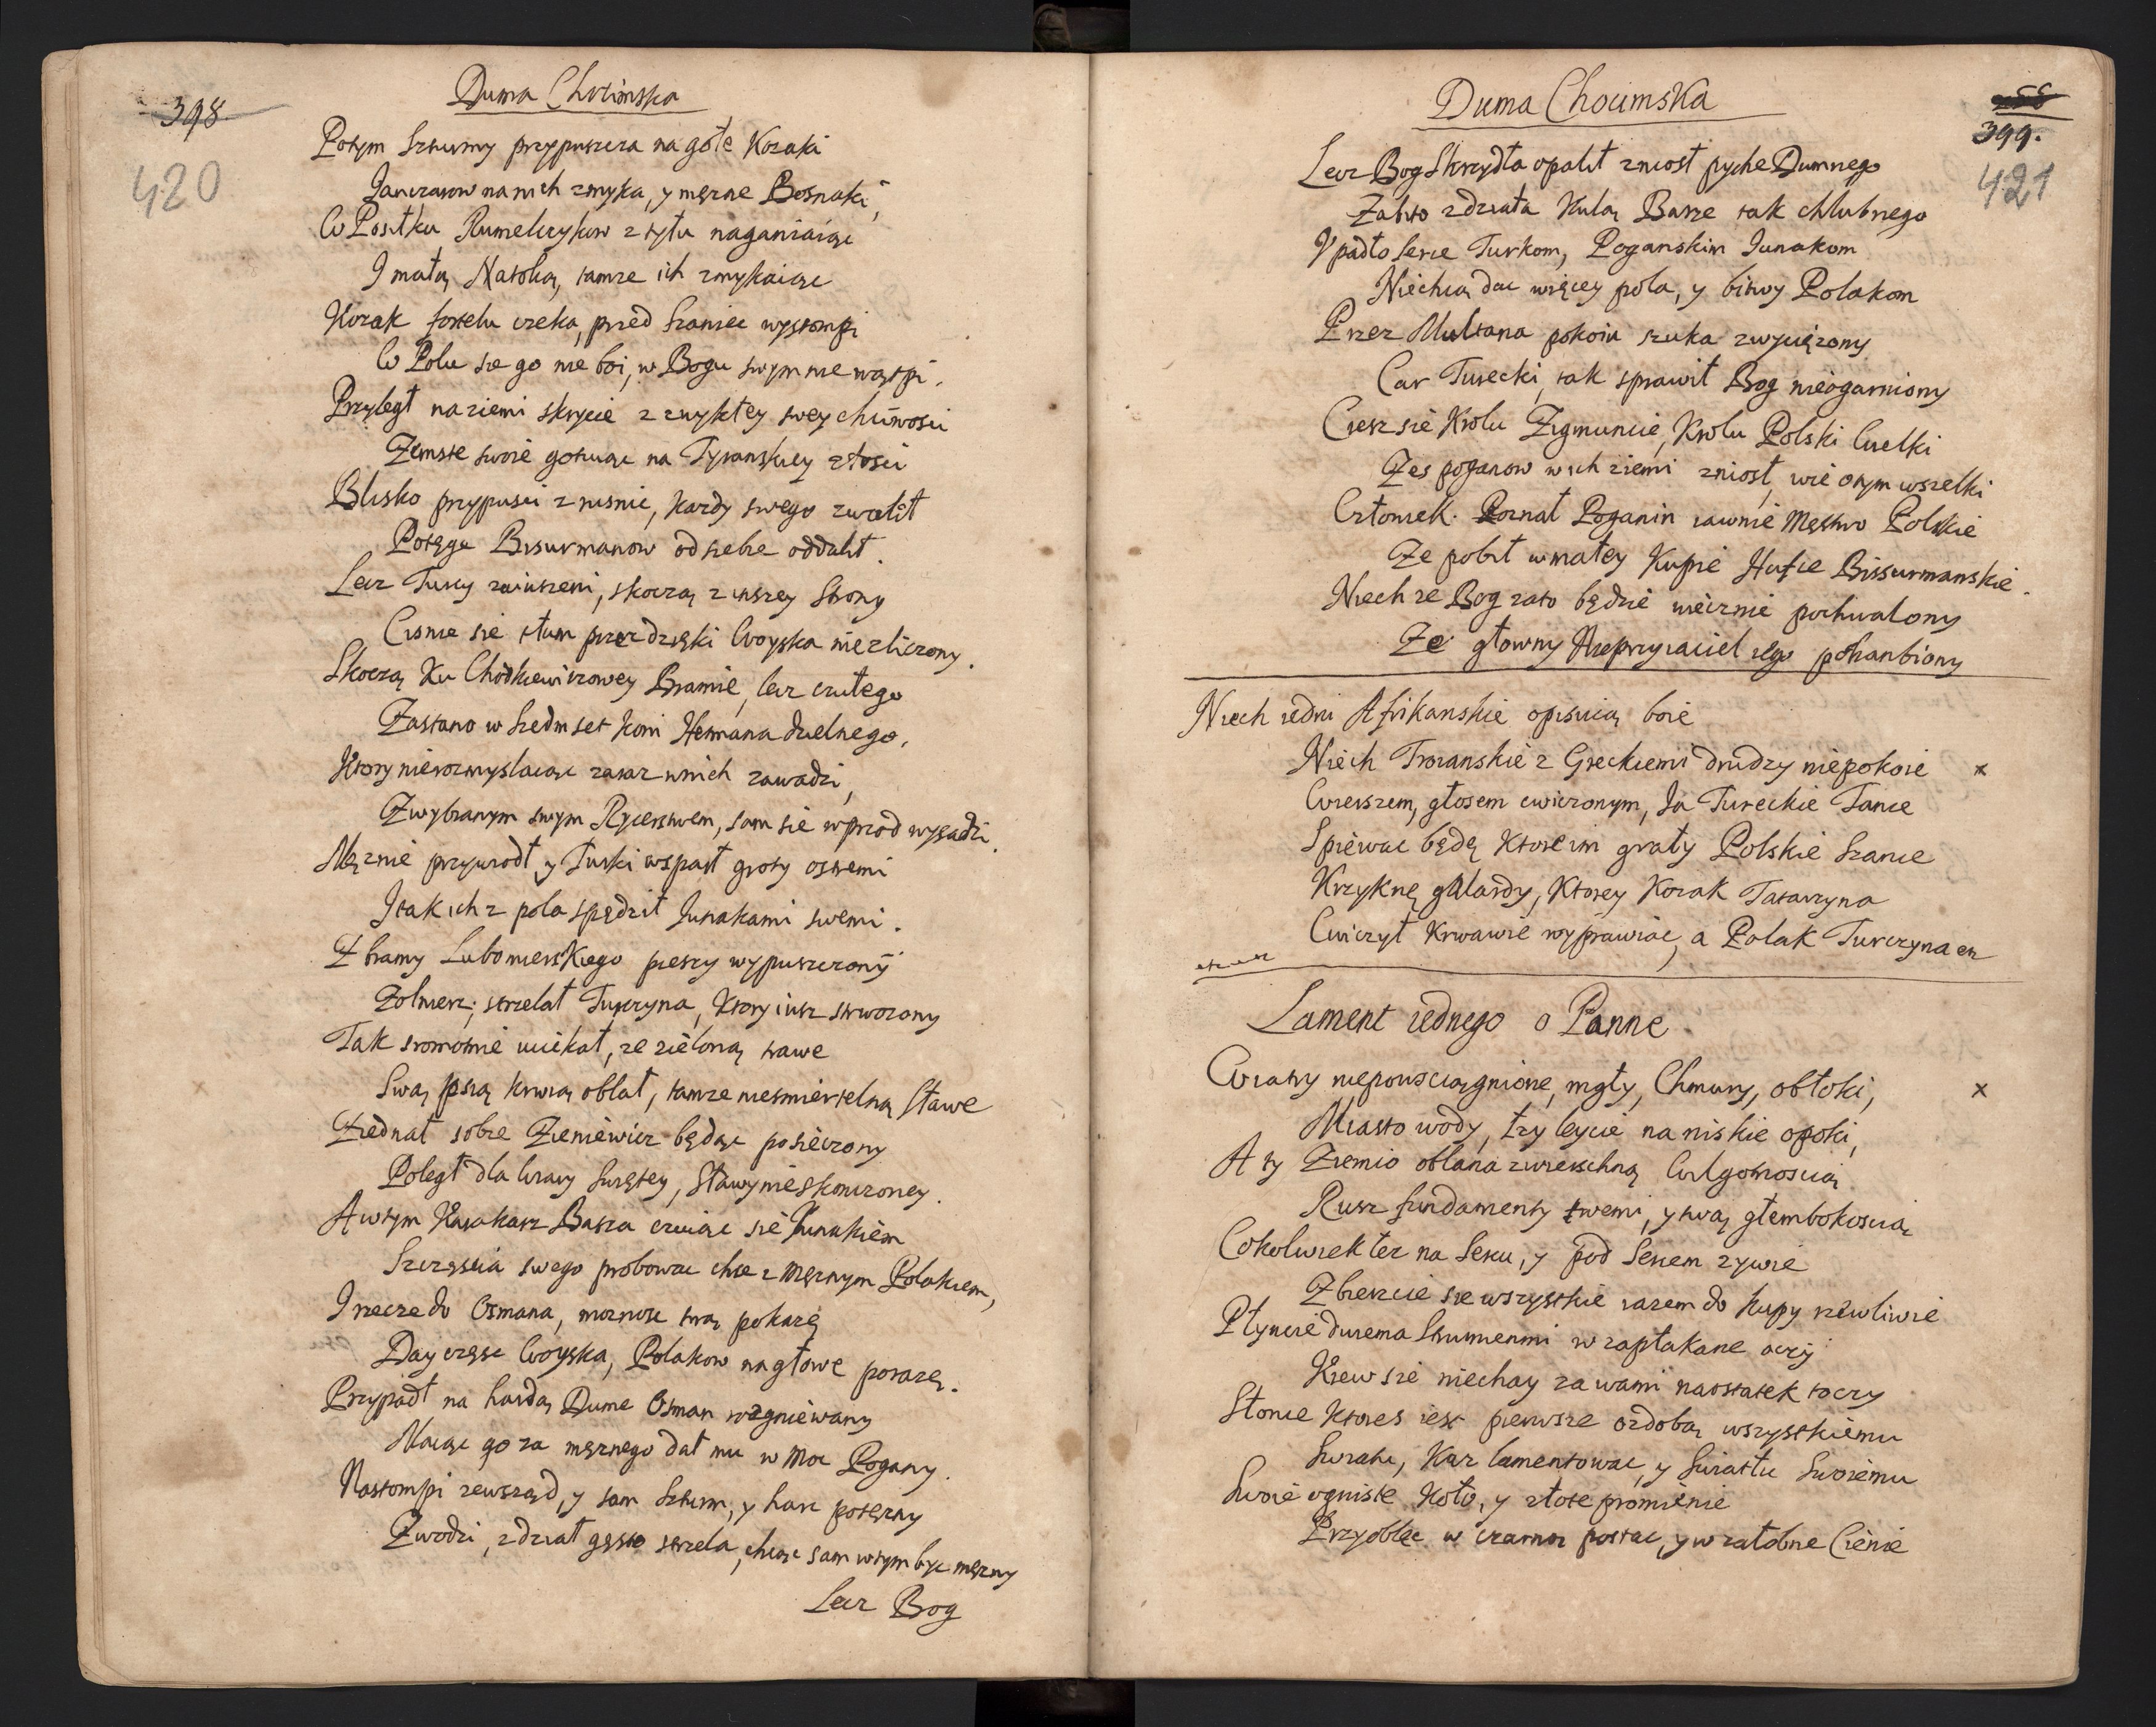 398
420
Duma Chocimska
Potym Szturmy przypuszcza na gołe Kozaki
Janczarow na nich zmyka, y mężne Bosnaki,
W Posiłku Rumelczykow z tyłu naganiaiąc
I małą Natolią, tamze ich zmykaiąc
Kozak fortelu czeka, przed szaniec wystompi
W Polu sie go nie boi, w Bogu swym nie wątpi.
Przyległ na ziemi skrycie z zwykłey swey chciwosci
Zemste swoie gotuiąc na Tyranskiey złosci
Blisko przypusci z rusnic, kazdy swego zwalił
Potęge Bisurmanow od siebie oddalił.
Lecz Turcy zaiuszeni, skoczą z inszey strony
Cisnie sie tłum przez dzięki Woyska niezliczony.
Skoczą Ku Chodkiewiczowey Bramie, lecz czułego
Zastano w siedmset koni Hetmana dzielnego,
Ktory nierozmyslaiąc zaraz w nich zawadzi,
Z wybranym swym Rycerstwem, sam sie w przod wysadzi.
Mężnie przywiodł y Turki wsparł groty ostremi
I tak ich z pola spędził Junakami swemi.
Z bramy Lubomierskiego pieszy wypuszczony
Zolnierz, strzelał Turczyna, Ktory iusz strwozony
Tak sromotnie uciekał, ze zieloną trawe
Swą psią krwią oblał, tamze niesmiertelną sławe
Ziednał sobie Zieniewicz będąc posieczony
Poległ dla wiary swiętey, sławy nieskonczoney.
A wtym Karakasz Basza czuiąc sie Junakiem
Szczęscia swego probowac chce z mężnym Polakiem,
I rzecze do Osmana, moznosc swą pokazę
Day częsc Woyska, Polakow na głowe porazę.
Przypadł na hardą Dume Osman rozgniewany
Maiąc go za mężnego dał mu w moc Pogany.
Nastompi zewsząd, y sam szturm, y harc potężny
Zwodzi, z dział gęsto strzela, chcąc sam wtym byc mężny
Lecz Bog
Duma Chocimska
399.
421
Lecz Bog Skrzydła opalił zniosł pyche Dumnego
Zabito z działa Kulą Basze tak chlubnego
Vpadło serce Turkom, Poganskim Junakom
Niechcą dac więcey pola, y bitwy Polakom
Przez Multana pokoiu szuka zwyciężony
Car Turecki, tak sprawił Bog nieogarniony
Ciesz sie Krolu Zigmuncie, Krolu Polski Wielki
Zes poganow w ich ziemi zniosł, wie otym wszelki
Człowiek. Poznał Poganin iawnie Męstwo Polskie
Ze pobił w małey Kupie Hufce Bissurmanskie.
Niech ze Bog zato będzie wiecznie pochwalony
Ze głowny Nieprzyiaciel iego pohanbiony
Niech iedni Afrikanskie opisuią boie
Niech Troianskie z Greckiemi drudzy niepokoie x
Wierszem, głosem cwiczonym, Ja Tureckie Tance
Spiewac będę Ktore im grały Polskie szance
Krzyknę galardy, Ktorey Kozak Tatarzyna
Cwiczył Krwawie wyprawiac, a Polak Turczyna
Lament iednego o Panne.
Wiatry niepowsciągnione, mgły, Chmury, obłoki, x
Miasto wody, łzy leycie na niskie opoki,
A ty Ziemio oblana zwierschną Wilgotnoscią
Rusz fundamenty twemi, y twą głembokoscią
Cokolwiek tez na Seru, y pod Serem zywie
Zbierzcie sie wszystkie razem do kupy rzewliwie
Płyncie dwiema Strumienmi w zapłakane oczy
Krew sie niechay za wami naostatek toczy
Słonce Ktores iest pierwsze ozdobą wszystkiemu
Swiatu, Karz lamentowac, y swiatłu swoiemu
Swoie ogniste Koło, y złote promienie
Przyoblec w czarną postac, y w załobne Cienie